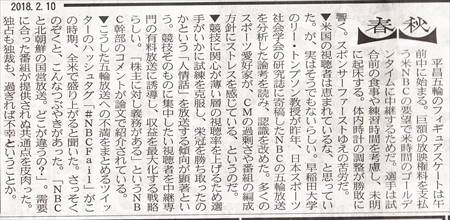 2018. 2. 10
春秋
平昌五輪のフィギュアスケートは午
前中に始まる。巨額の放映権料を払
う米NBCの要望で米時間のゴールデ
ンタイムに中継するためだ。選手は試
合前の食事や練習時間を考慮し、未明
に起床する。体内時計の調整が勝敗に
響く。スポンサーファーストゆえの苦労だ。
▼米国の視聴者は恵まれているな、と思ってい
たが、実はそうでもないらしい。早稲田大学
のリー・トンプソン教授が昨年、日本スポーツ
社会学会の研究誌に寄稿したNBCの五輪放送
を分析した論考を読み、認識を改めた。多くの
スポーツ愛好家が、CMの過剰さや番組の編成
方針にストレスを感じている、というのだ。
▼競技に関心が薄い層の視聴率を上げるため選
手がいかに試練を克服し、栄冠を勝ち取ったの
かという「人情話」を放送する傾向が顕著とい
う。競技そのものに集中したい視聴者を中継専
門の有料放送に誘導し、収益を最大化する戦略
らしい。「株主に対し義務がある」というNB
C幹部のコメントが論文で紹介されている。
▼こうした五輪放送への不満をまとめるツイッ
ターのハッシュタグ「#NBCFail」がこ
の時期、全米で盛り上がると聞いた。さっそく
のぞくと、こんなつぶやきがあった。「NBC
と北朝鮮の国営放送。どこが違うの?」。需要
に合った番組が提供されぬ共通点を皮肉った。
独占も独裁も、過ぎれば不幸ということか。